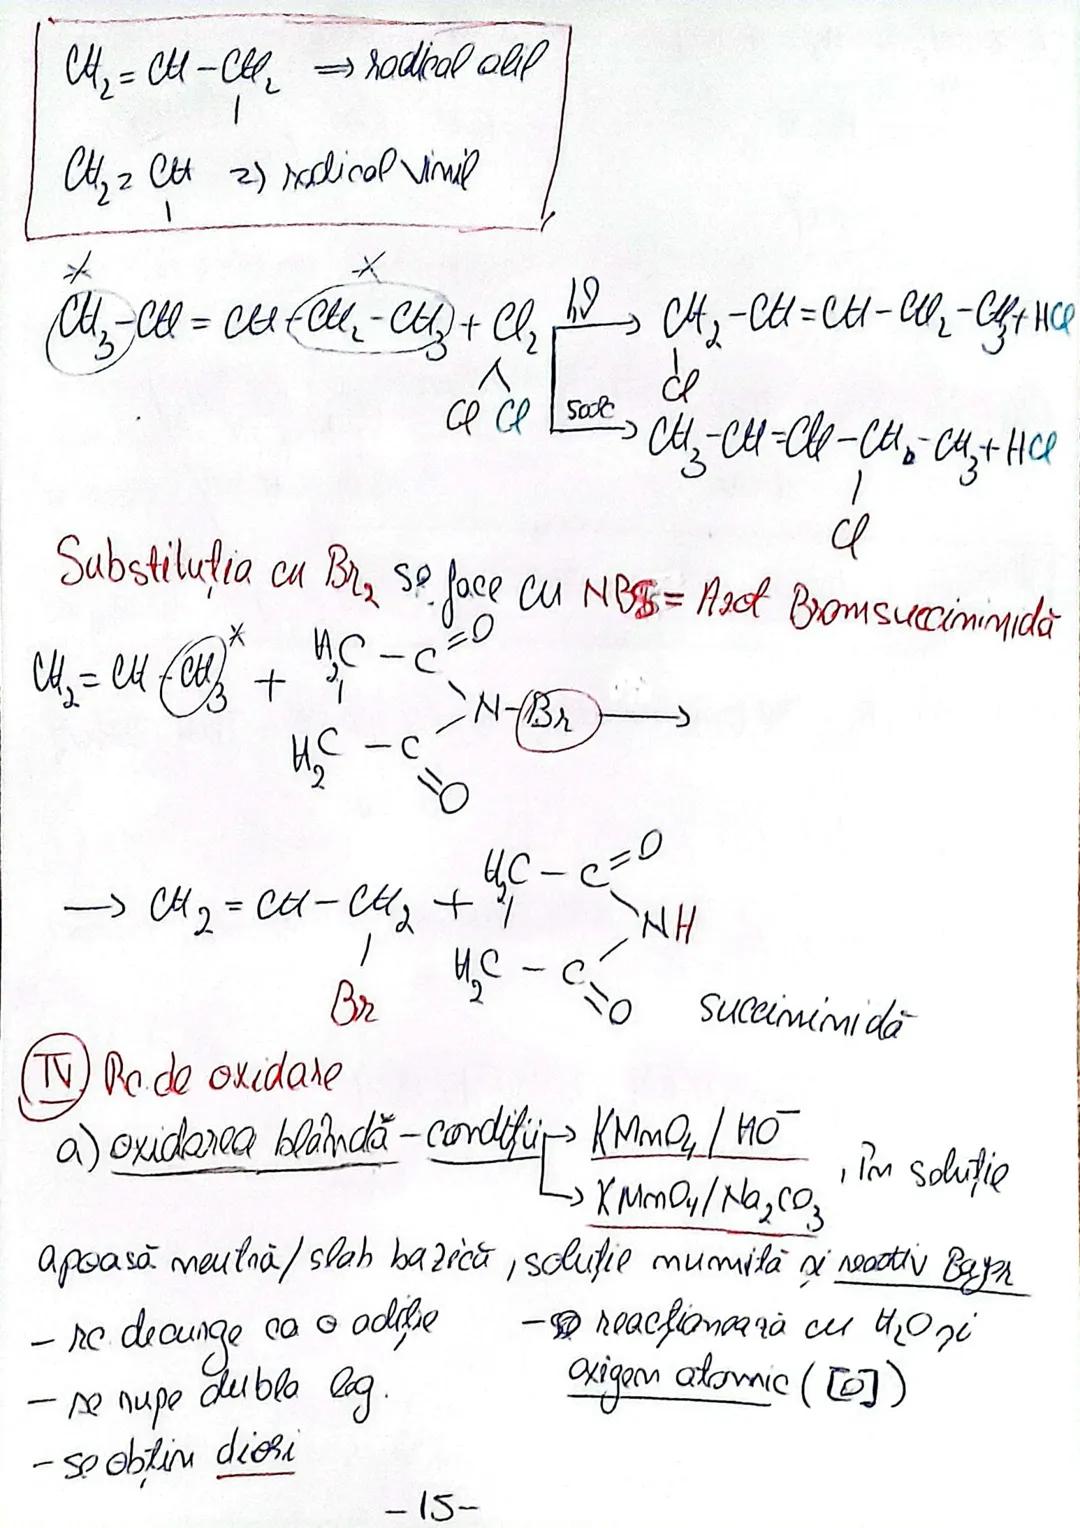 CH₂ = CH – CH₂ ⇒ radical alil
|
CH₂ = CH ⇒ radical vinil
|
* *
CH₃ – CH = CH – CH₂ – CH₃ + Cl₂ hν → CH₂ – CH = CH – CH₂ – CH₃ + HCl
Cl Cl Cl
500°C → CH₃ – CH = CH – CH₂ – CH₃ + HCl
Cl
Substituția cu Br₂ se face cu NBS = Azot Bromsuccinimidă
CH₂ = CH – CH₃* + H₂C – C = O
N – Br →
H₂C – C = O
→ CH₂ = CH – CH₂ + H₂C – C = O
| NH
Br H₂C – C = O succinimidă
IV Rc. de oxidare
a) oxidarea blândă – condiții → KMnO₄ / HO⁻
→ KMnO₄ / Na₂CO₃ , în soluție
apoasă neutră / slab bazică , soluție numită și reactiv Bayer
– rc. decurge ca o adiție
– se rupe dubla leg.
– se obțin dioli
– reacționează cu H₂O și
oxigen atomic ( [O] )
– 15 –